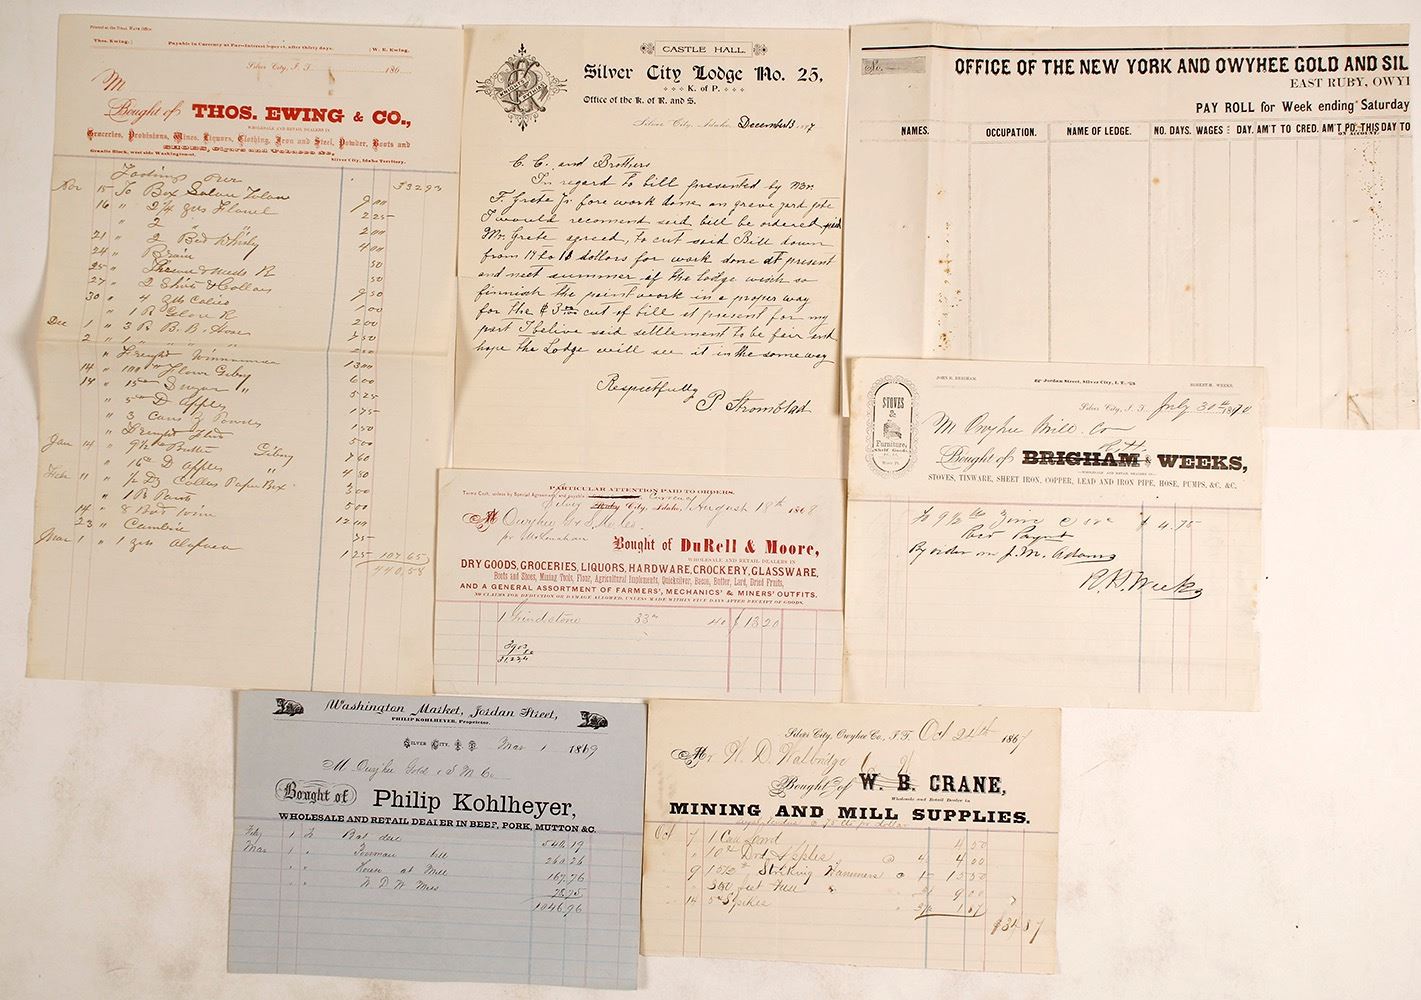 Printed at the Idaho Wave Office
Thos. Ewing. Payable in Currency at Par—Interest 3 per ct. after thirty days. W. E. Ewing.
Silver City, I. T. 186
M
Bought of THOS. EWING & CO.,
WHOLESALE AND RETAIL DEALERS IN
Groceries, Provisions, Wines, Liquors, Clothing, Iron and Steel, Powder, Boots and
SHOES, Cigars and Tobacco &c,
Granite Block, west side Washington-st. Silver City, Idaho Territory.
Footing over 332 93
Nov 15 To Box 9 00
16 " 2 1/4 2 25
" 2 " " 2 00
21 " 2 Bot Whisky 4 00
24 " 50
25 " 50
27 " 2 Shirts & Collars 9 50
30 " 4 yds Calico 1 00
" 1 R 2 00
Dec 1 " 3 R B. B.
2 " 1 " " " "
" Freight 13 00
14 " 100 Flour 6 00
" 15 " 5 25
" 5 D Apples 1 75
" 3 cans 1 50
" Freight 5 00
Jan 14 " 9 1/2 Butter
" 16 D Apples
Feb 11 " 1/2 Dz Collars Paper Box
" 1 R Pants 5 00
14 " 8 Bot Wine 12 00
23 " 75
Mar 1 " 1 yds Alapaca 1 25 107.65
440,58
CASTLE HALL.
Silver City Lodge No. 25,
K. of P.
Office of the K. of R. and S.
Silver City, Idaho, December 3, 1897
C. C. and Brothers
In regard to bill presented by Mr.
F. Grete Jr fore work done on grave yard
I would recomend said bill be ordered paid
Mr. Grete agreed, to cut said Bill down
from to dollars for work done at present
and next summer if the Lodge wich so
finnish the paint work in a proper way
for the $3 cut of bill at present for my
part I belive said settlement to be fair and
hope the Lodge will see it in the same way
Respectfully
P. Stromblad
No.
OFFICE OF THE NEW YORK AND OWYHEE GOLD AND SIL
EAST RUBY, OWYI
PAY ROLL for Week ending Saturday
NAMES. OCCUPATION. NAME OF LEDGE. NO. DAYS. WAGES DAY. AM'T TO CRED. AM'T PD. THIS DAY TO
ON ACCOUNT.
JOHN R. BRIGHAM. Jordan Street, Silver City, I. T. ROBERT H. WEEKS.
STOVES
&
Furniture,
Shelf Goods
Silver City, I. T. July 30th 1870
M Owyhee Mill. Co
Bought of BRIGHAM & WEEKS,
WHOLESALE AND RETAIL DEALERS IN
STOVES, TINWARE, SHEET IRON, COPPER, LEAD AND IRON PIPE, HOSE, PUMPS, &C. &C.
To 9 1/2 lbs Zinc @ $ 4.75
Rec'd Paymt
By order on J. M. Adams
R. H. Weeks
PARTICULAR ATTENTION PAID TO ORDERS.
Terms Cash, unless by Special Agreement, and payable Currency
Silver City, Idaho, August 18th 1868
M Owyhee G & S. M. Co.
pr McLenahan
Bought of DuRell & Moore,
WHOLESALE AND RETAIL DEALERS IN
DRY GOODS, GROCERIES, LIQUORS, HARDWARE, CROCKERY, GLASSWARE,
Boots and Shoes, Mining Tools, Flour, Agricultural Implements, Quicksilver, Bacon, Butter, Lard, Dried Fruits,
AND A GENERAL ASSORTMENT OF FARMERS', MECHANICS' & MINERS' OUTFITS.
NO CLAIMS FOR DEDUCTION OR DAMAGE ALLOWED, UNLESS MADE WITHIN FIVE DAYS AFTER RECEIPT OF GOODS.
1 Grindstone 33 40 $ 13 20
Washington Market, Jordan Street,
PHILIP KOHLHEYER, Proprietor.
SILVER CITY, I. T. Mar 1 1869
M Owyhee Gold & S M Co
Bought of Philip Kohlheyer,
WHOLESALE AND RETAIL DEALER IN BEEF, PORK, MUTTON &C.
Feby 1 To Bal due 540,19
Mar 1 " Foreman bill 260,26
" " House at Mill 167,76
" " W D W Mess 78,75
1046,96
Silver City, Owyhee Co., I. T. Oct 24th 1867
Mr W. D. Walbridge
Bought of W. B. CRANE,
Wholesale and Retail Dealer in
MINING AND MILL SUPPLIES.
Oct 7 1 Can Lard 4 50
" 10 Dried Apples @ 4 00
9 Striking Hammers @ 1 15 50
" 300 feet Fuse 9 00
14 5 Spikes 1 87
$34 87